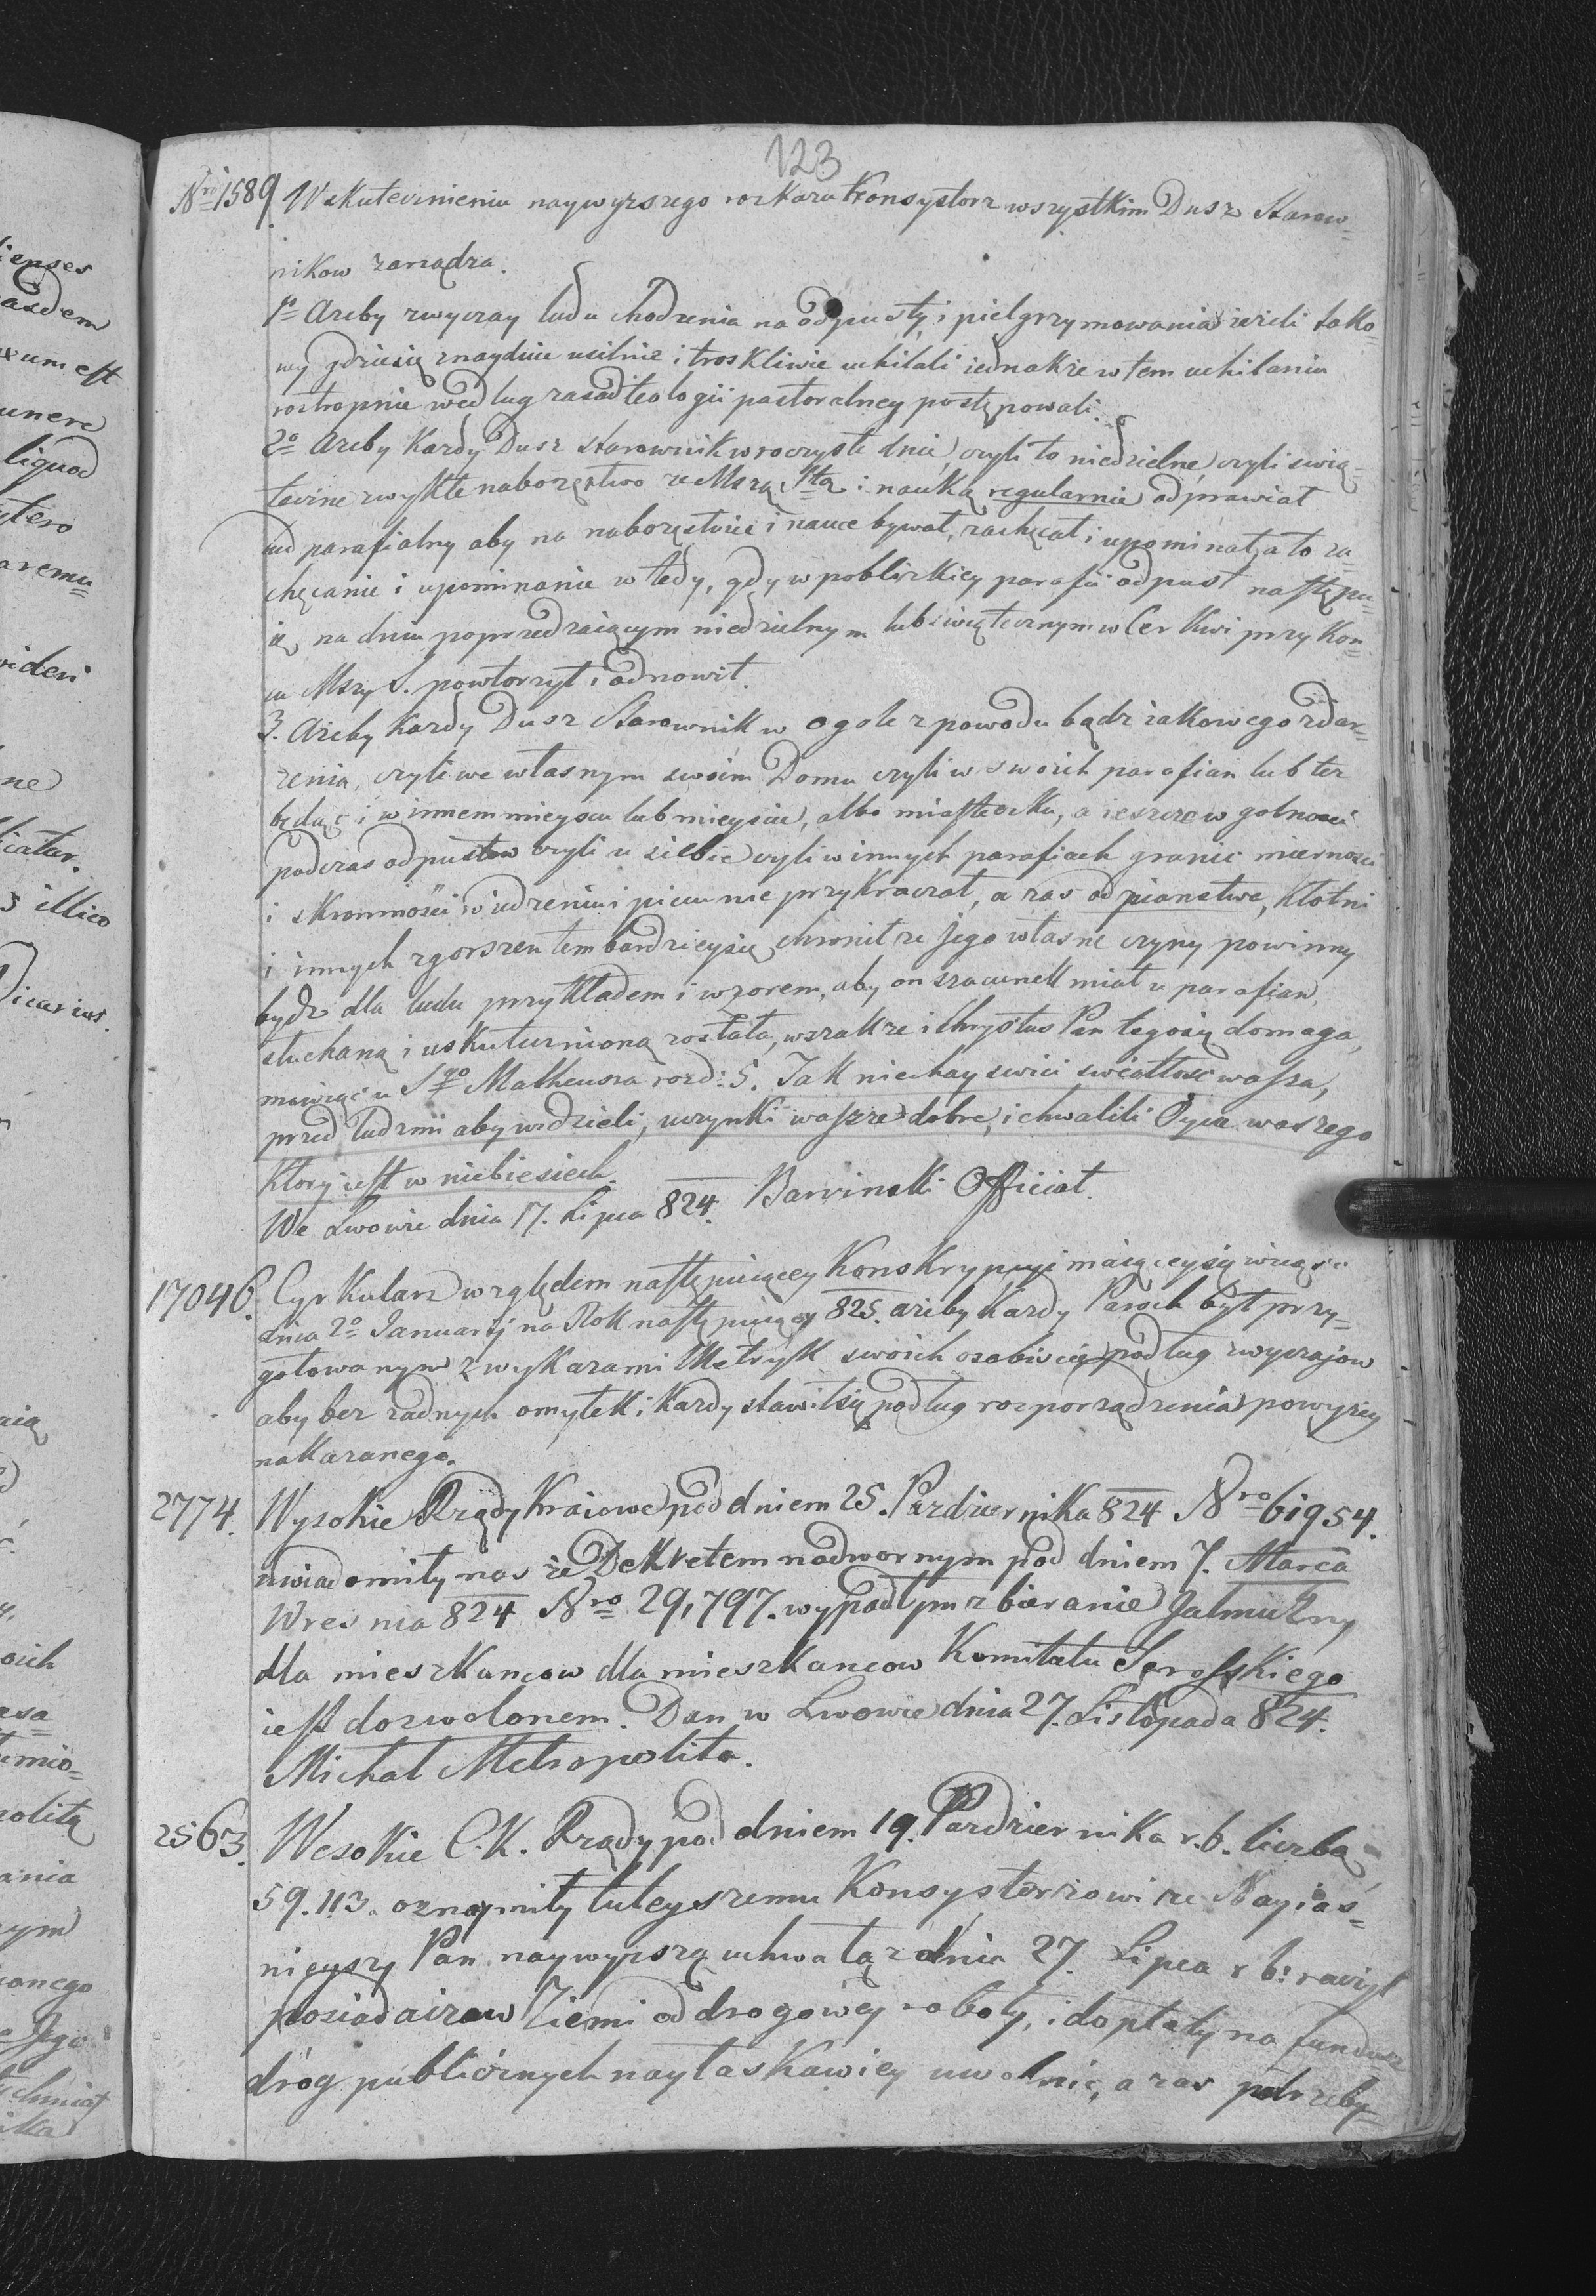 123
Nro 1589. W skutecznieniu naywyzszego rozkazu Konsystorz wszystkim Dusz Starow=
nikow zarządza.
1o Azeby zwyczay ludu chodzenia na odpusty, i pielgrzymowania iezeli tako
wy gdziesię znaydzie usilnie i troskliwie uchilali iednakze w tem uchilaniu
rostropnie według zasad teologii pastoralney postępowali.
2o Azeby Kazdy Dusz starownik w roczyste dnie, czyli to niedzielne, czyli swią=
teczne zwykłe nabozęstwo ze Mszą Stą i nauką regularnie odprawiał
lud parafialny aby na nabozęstwie i nauce bywał, zachęcał i upominał, a to za=
chęcanie i upominanie w tedy, gdy w pobliszkiey parafii odpust następu=
ie, na dniu poprzedzaiącym niedzielnym lub swiątecznym w Cerkwi przy Kon=
cu Mszy S. powtorzył i odnowił.
3. Azeby Kazdy Dusz Starownik w ogole z powodu bądz iakowego zdar=
zenia, czyli we własnym swoim Domu czyli w swoich parafian lub tez
będąc i w innem mieyscu lub mieyscie, albo miasteczku, a ieszcze w golnosci
podczas odpustow czyli u siebie czyli w innych parafiach granic miernosci
i skromności w iedzeniu i piciu nie przykraczał, a zas od pianstwa, Kłotni
i innych zgorszen tem bardzieysię chronił ze Jego własne czyny powinny
bydz dla ludu przykładem i wzorem, aby on szacunek miał u parafian,
słuchaną i uskuteczniong została, wszakze i Chrystus Pan tegosię domaga,
mowiąc u Sgo Matheusza rozd: 5. Jak niechay swieci swiatłosc wasza,
przed ludzmi aby widzieli, uczynki wasze dobre, i chwalili Oyca waszego
Ktory iest w niebiesiech.
We Lwowie dnia 17. Lipca 824. Barvinski Officiał.
17046. Cyrkularz względem następuiącey Konskrypcyi maiącey się wziąsc
dnia 2o Januarij na Rok następuiący 825. azeby Kazdy Paroch był przy=
gotowanym z wykazami Metryk swoich osobiscie podług zwyczajow
aby bez zadnych omyłek i Kazdy stawił się podług rozporządzenia powyzey
nakazanego.
2774. Wysokie Rządy Kraiowe pod dniem 25. Pazdziernika 824 Nro 61954.
uwiadomiły nas ze Dekretem nadwornym pod dniem 7. Marca
Wresnia 824 Nro 29,797. wypadłym zbieranie Jalmużny
dla mieszkancow dla mieszkancow Komitatu Sarosskiego
iest dozwolonem. Dan w Lwowie dnia 27. Listopada 824.
Michał Metropolita.
2563. Wesokie C. K. Rządy pod dniem 19. Pazdziernika r. b. liczbą
59.113. oznaymiły tuteyszemu Konsystorzowi ze Nayias=
nieyszy Pan naywyzszą uchwałą z dnia 27. Lipca r b: raczył
posiadaczow Ziemi od drogowey roboty, i dopłaty na fundusz
dróg publicznych nayłaskawiey uwolnic, a zas potrzeby=